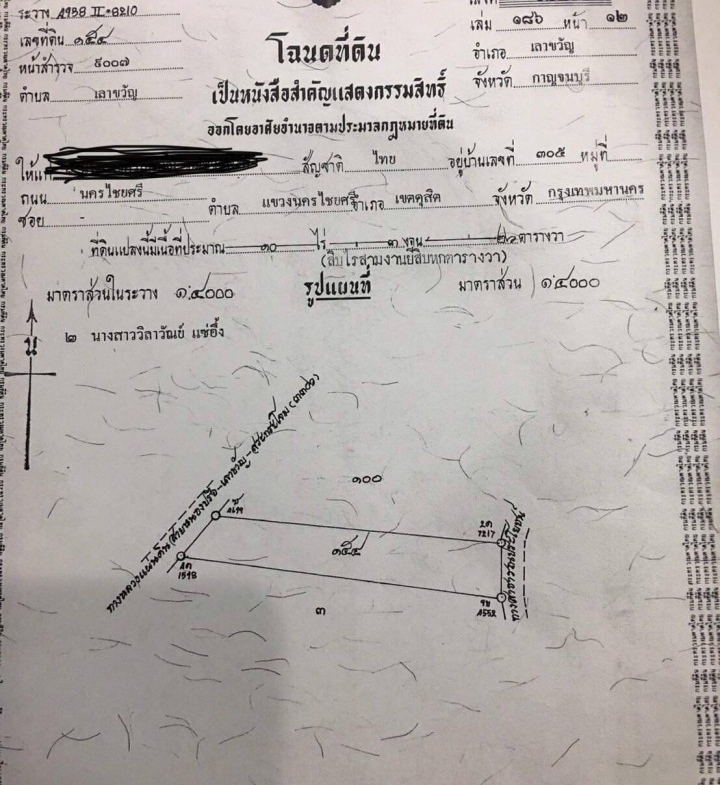 ระวาง 4938 II 8210
เล่ม ๑๘๖ หน้า ๑๒
เลขที่ดิน ๑๕๔
โฉนดที่ดิน
อำเภอ เลาขวัญ
หน้าสำรวจ ๙๐๐๗
จังหวัด กาญจนบุรี
ตำบล เลาขวัญ
เป็นหนังสือสำคัญแสดงกรรมสิทธิ์
ออกโดยอาศัยอำนาจตามประมวลกฎหมายที่ดิน
ให้แก่ สัญชาติ ไทย อยู่บ้านเลขที่ ๓๐๕ หมู่ที่
ถนน นครไชยศรี
ซอย - ตำบล แขวงนครไชยศรี อำเภอ เขตดุสิต จังหวัด กรุงเทพมหานคร
ที่ดินแปลงนี้มีเนื้อที่ประมาณ ๑๐ ไร่ ๓ งาน ๒๖ ตารางวา
(สิบไร่สามงานยี่สิบหกตารางวา)
มาตราส่วนในระวาง ๑:๔๐๐๐ รูปแผนที่ มาตราส่วน ๑:๔๐๐๐
๒ นางสาววิลาวัณย์ แซ่อึ้ง
น
๑๐๐
๑๕๔
7217
1598
๓